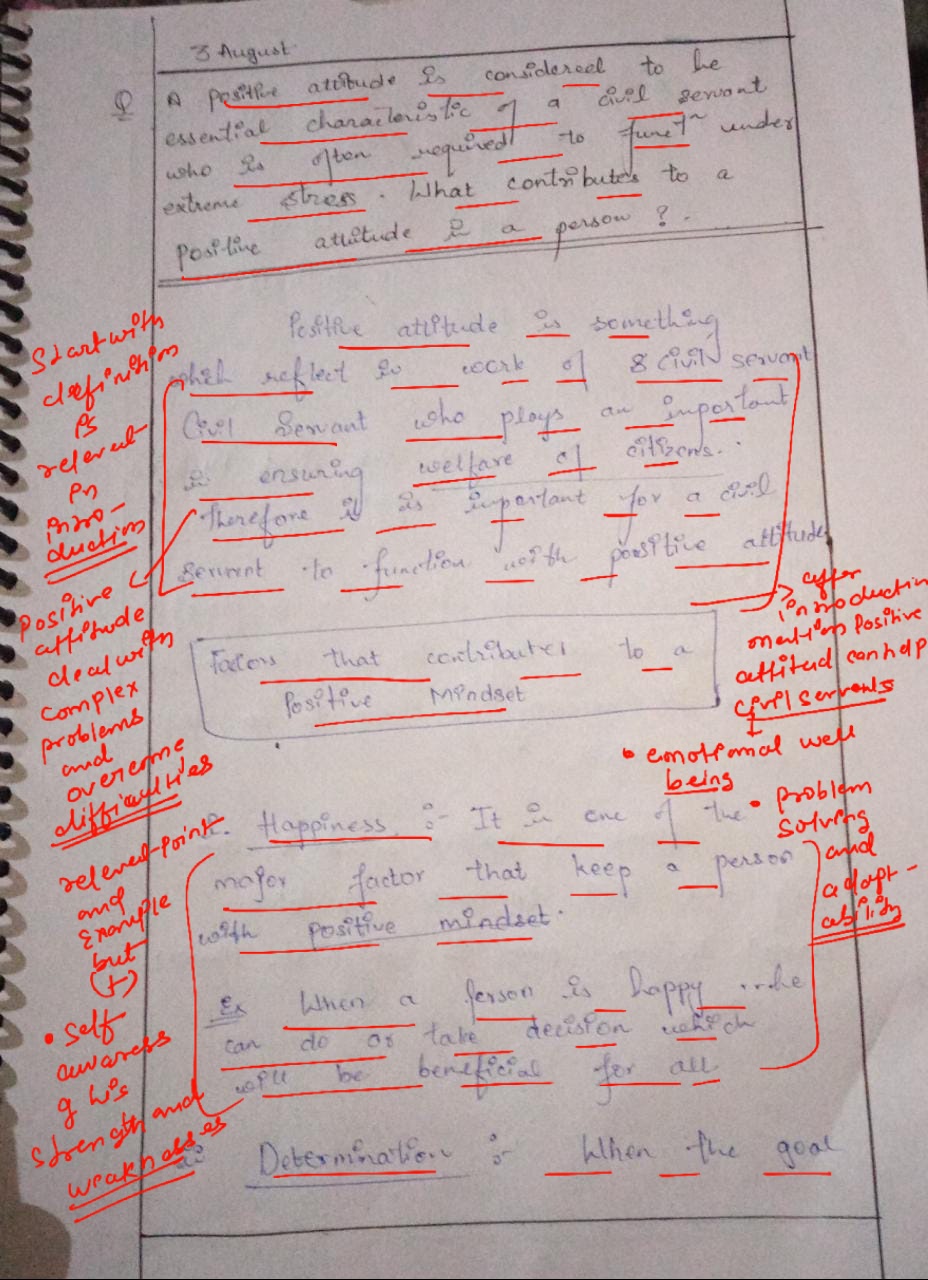 3 August
Q A positive attitude is considered to be
essential characteristic of a civil servant
who is often required to funcⁿ under
extreme stress. What contributes to a
positive attitude in a person ?.
Positive attitude is something
which reflect in work of a civil servant
Civil Servant who plays an important
in ensuring welfare of citizens.
Therefore it is important for a civil
servant to function with positive attitude
Factors that contributes to a
Positive Mindset
Happiness :- It is one of the
major factor that keep a person
with positive mindset.
Ex When a person is happy he
can do or take decision which
will be beneficial for all
Determination :- When the goal
Start with
definition
is
relevant
in
intro-
duction
Positive
attitude
deal with
complex
problems
and
overcome
difficulties
relevent point
and
Example
but
(+)
• Self
awaress
of his
strength and
weaknesses
after
introduction
mention Positive
attitud can help
civil servents
• emotional well
being
• problem
solving
and
adapt-
ability